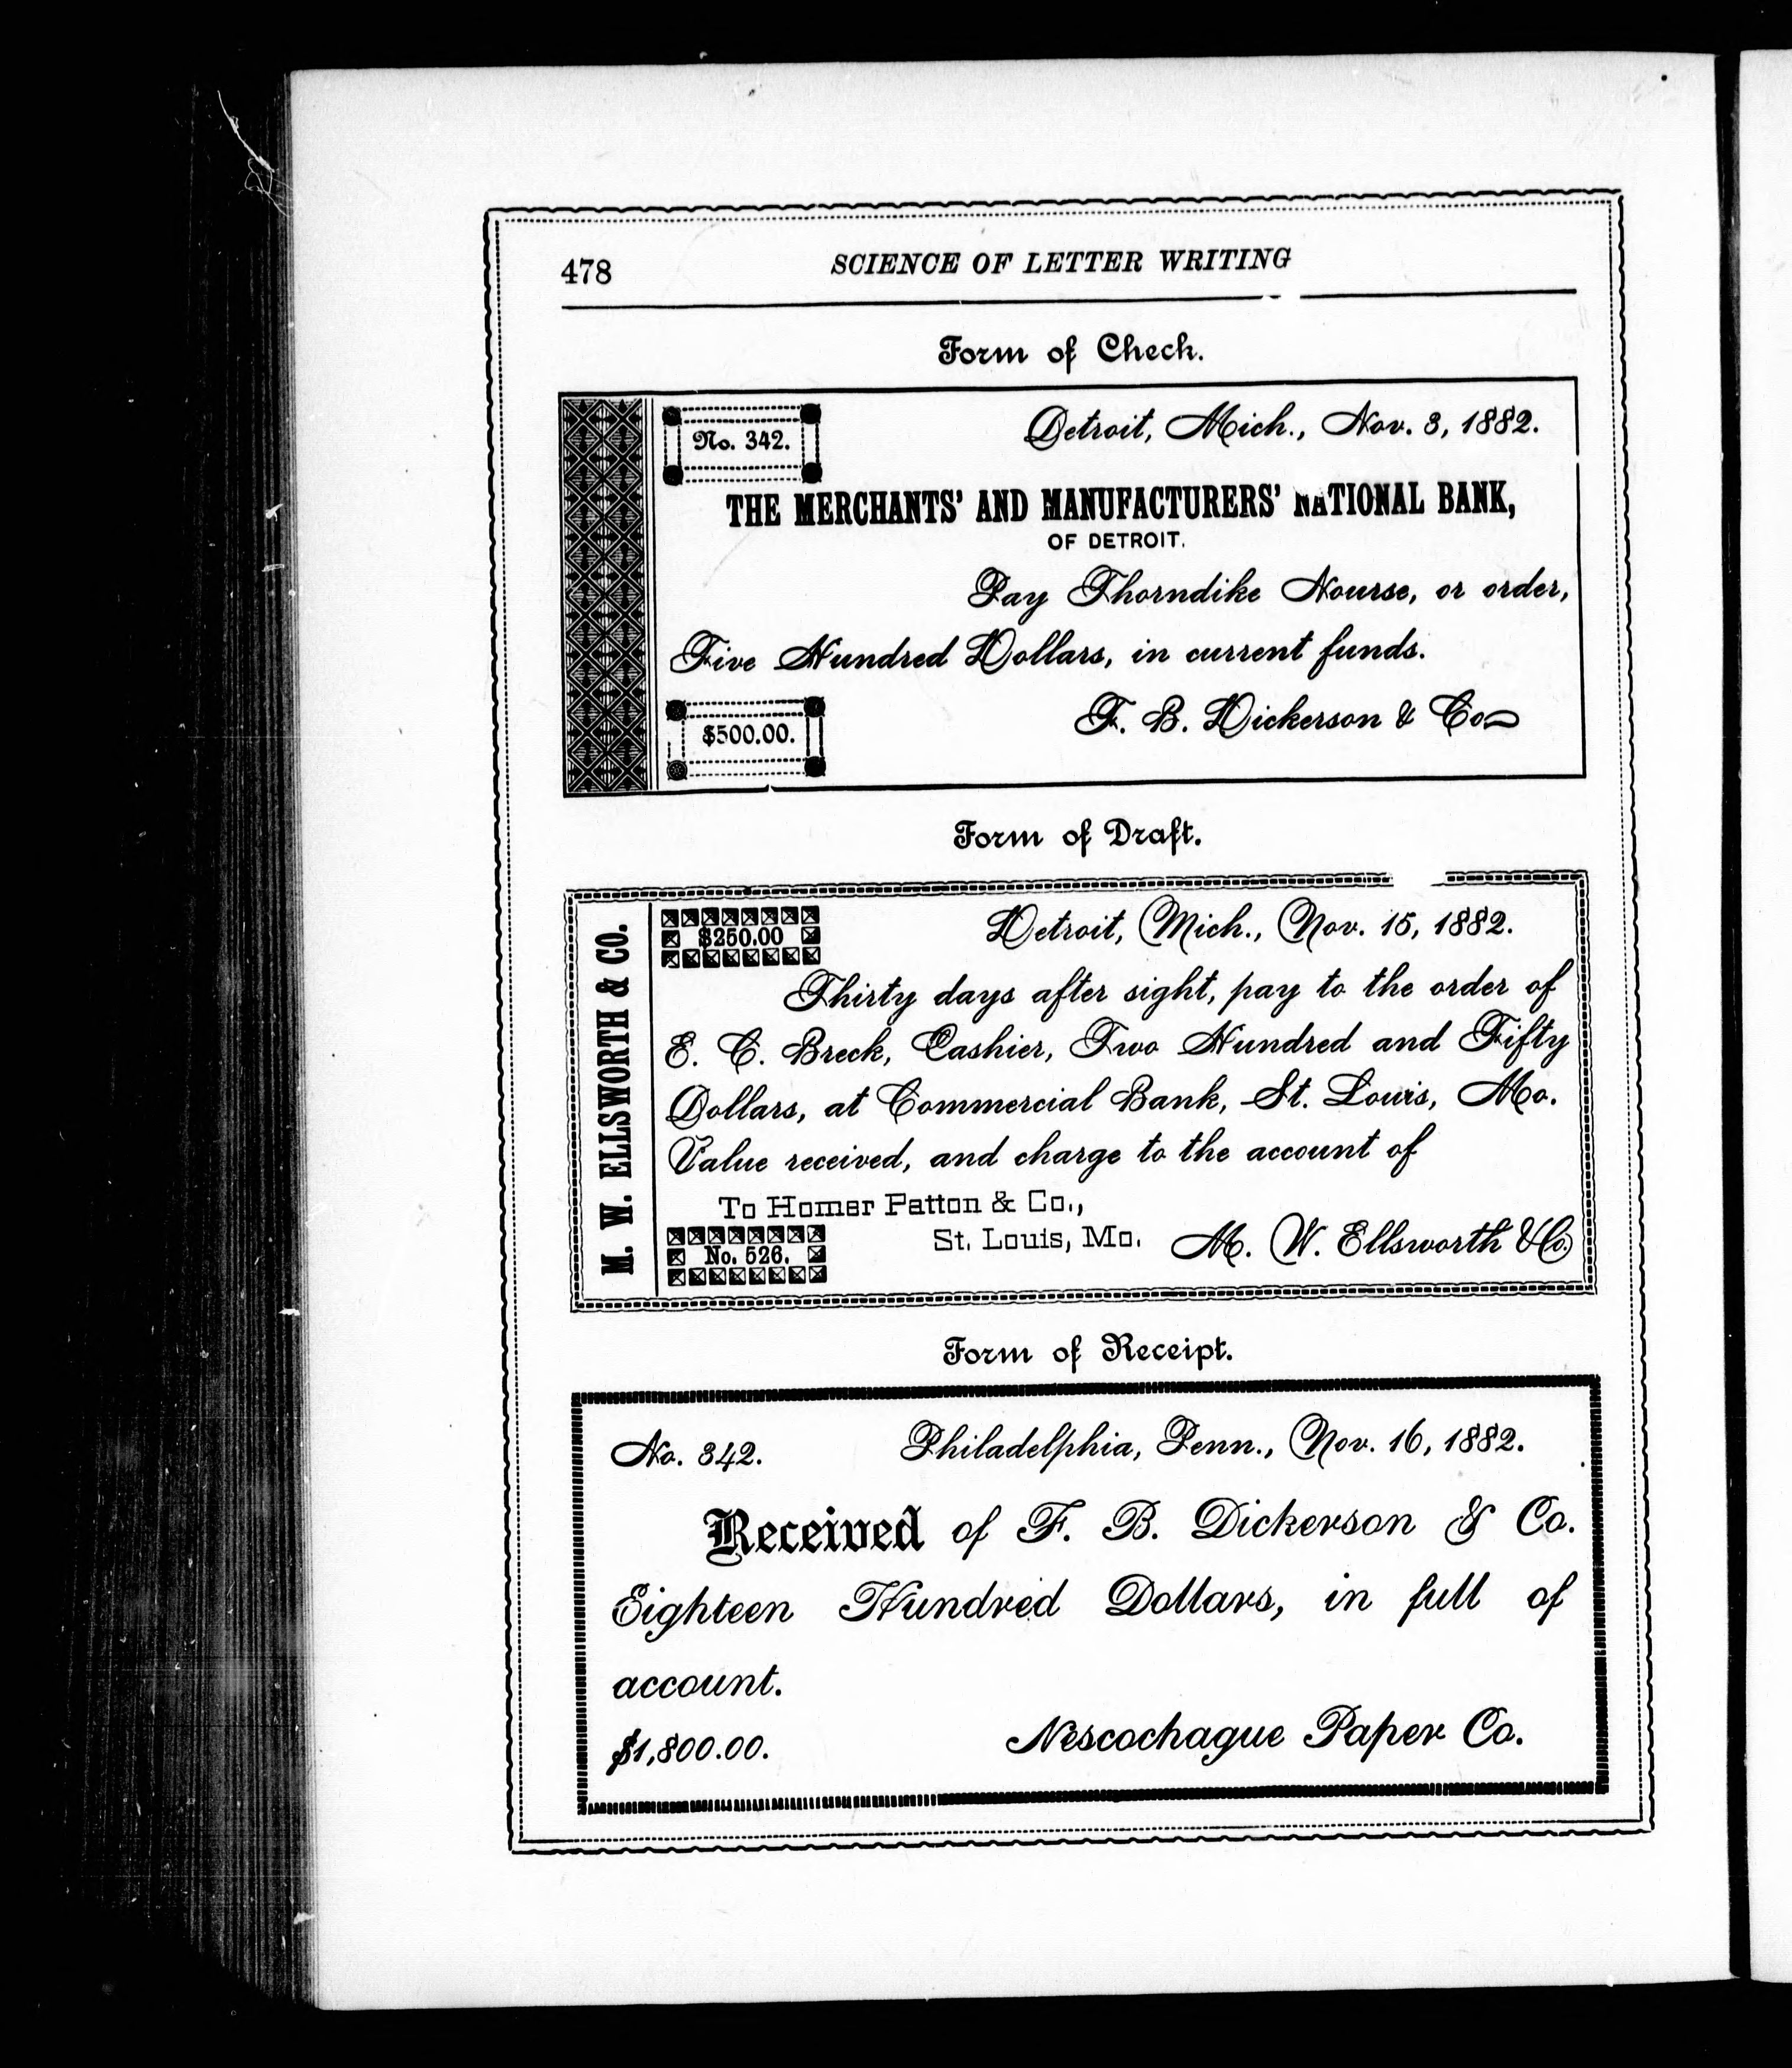 478
SCIENCE OF LETTER WRITING
Form of Check.
No. 342.
Detroit, Mich., Nov. 3, 1882.
THE MERCHANTS' AND MANUFACTURERS' NATIONAL BANK,
OF DETROIT.
Pay Thorndike Nourse, or order,
Five Hundred Dollars, in current funds.
$500.00.
F. B. Dickerson & Co
Form of Draft.
M. W. ELLSWORTH & CO.
$250.00
Detroit, Mich., Nov. 15, 1882.
Thirty days after sight, pay to the order of
E. C. Breck, Cashier, Two Hundred and Fifty
Dollars, at Commercial Bank, St. Louis, Mo.
Value received, and charge to the account of
To Homer Patton & Co.,
St. Louis, Mo.
M. W. Ellsworth & Co.
No. 526.
Form of Receipt.
No. 342.
Philadelphia, Penn., Nov. 16, 1882.
Received of F. B. Dickerson & Co.
Eighteen Hundred Dollars, in full of
account.
$1,800.00.
Nescochague Paper Co.